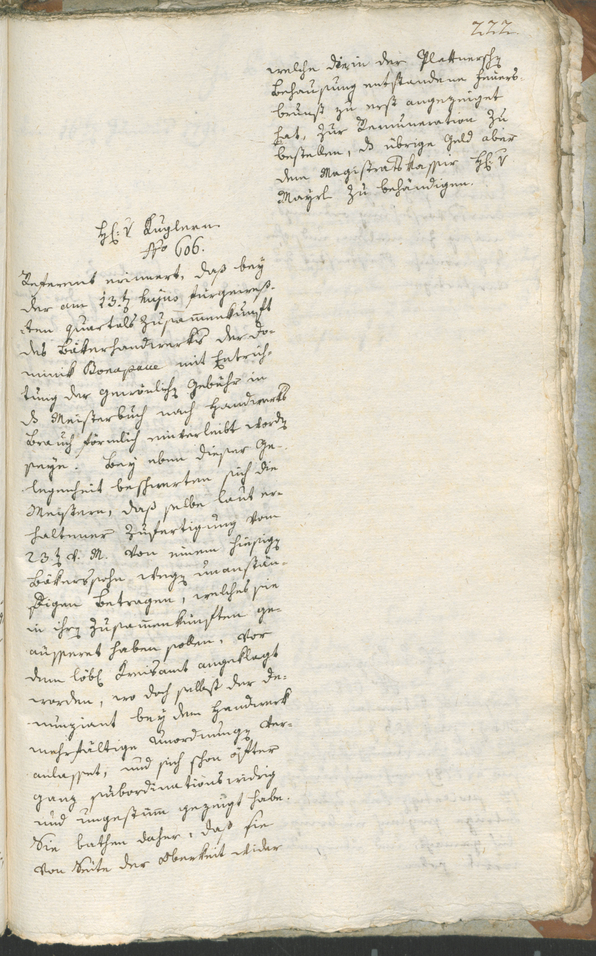 222.
welche die in der Plattnersch
Behausung entstandene Feuers-
brunst zu erst angezeiget
hat, zur Remuneration zu
bestellen, d übrige Geld aber
dem Magistratskassier H: v
Mayrl zu behändigen.
H: v Kuglern.
No 606.
Referent erinnert, daß bey
der am 23.t hujus fürgewest-
ten quartals Zusammenkunft
des Bäkerhandwerks der Do-
minik Bonapace mit Entrich-
tung der gewönlich Gebühr in
d Meisterbuch nach Handwerks
Brauch förmlich einverleibt word
seye. Bey eben dieser Ge-
legenheit beschwerten sich die
Meistere, daß selbe laut er-
haltener Zufertigung vom
23.t v. M. von einem hiesig
Bäkerssohn weg unanstän-
digen Betragen, welches sie
in ihr Zusammenkünften ge-
äusseret haben sollen, vor
dem löbl Kreisamt angeklagt
worden, wo doch selbst der De-
nunziant bey dem Handwerk
mehrfältige Unordnung ver-
anlasset, und sich schon öfter
ganz subordinationswidrig
und ungestüm gezeugt habe.
Sie bathen daher, daß sie
von Seite der Oberkeit wider